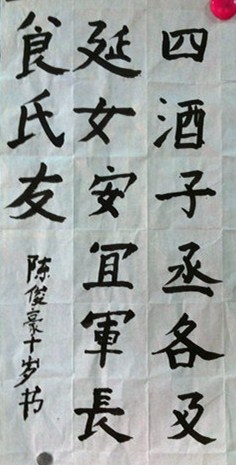 四酒子丞各叉
延女安宜軍長
食氏友
陈俊豪十岁书